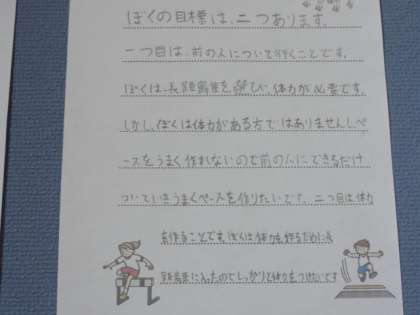 ぼくの目標は、二つあります。
一つ目は、前の人について行くことです。
ぼくは、長距離走を選び、体力が必要です。
しかし、ぼくは体力がある方ではありませんしペ
ースをうまく作れないので前の人にできるだけ
ついていきうまくペースを作りたいです。二つ目は、体力
を作ることです。ぼくは体力を作るために
に入ったのでしっかりて体力をつけたいです